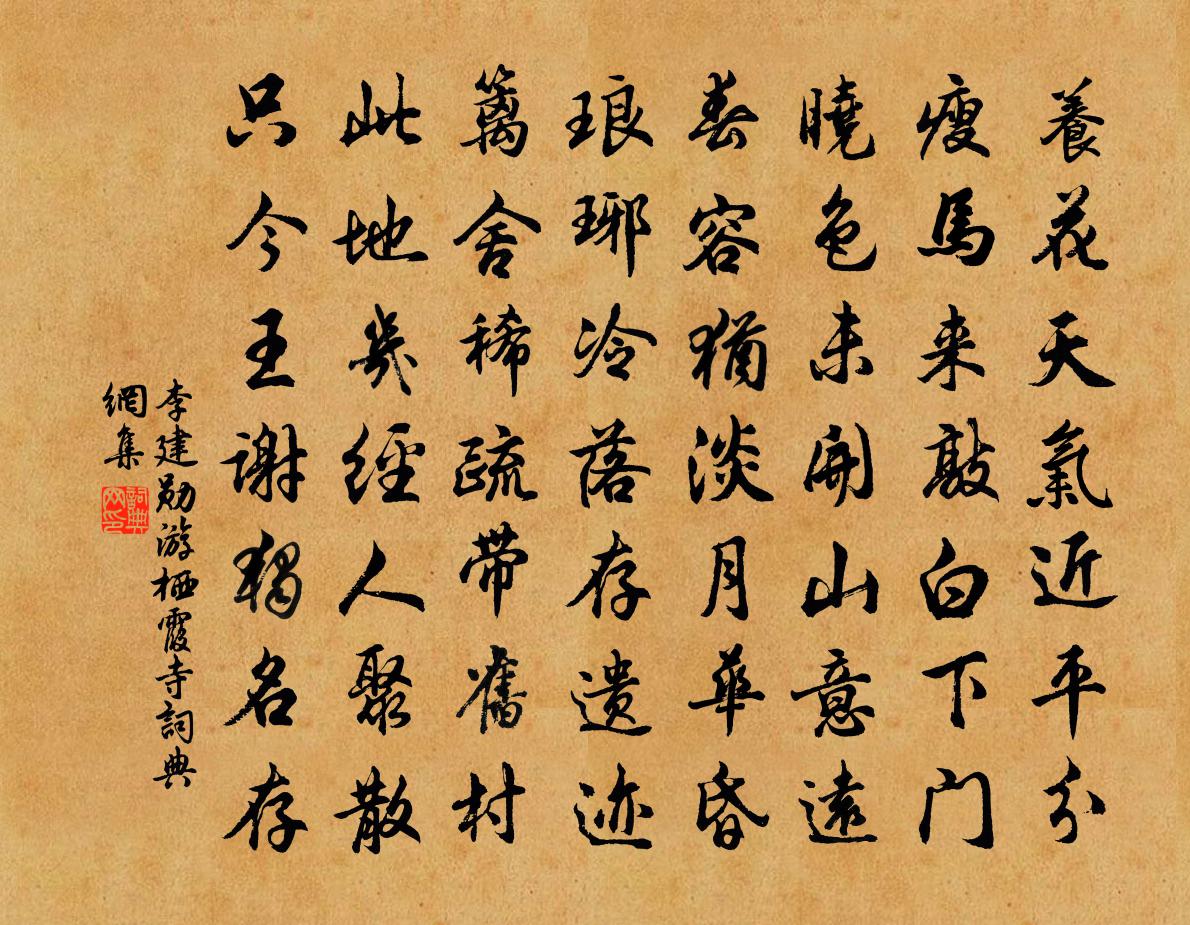 養花天氣近平分
瘦馬来敲白下门
曉色未開山意遠
春容猶淡月華昏
琅琊冷落存遗迹
籬舍稀疏带舊村
此地幾經人聚散
只今王谢獨名存
李建勋游栖霞寺詞典
網集
詞典网印